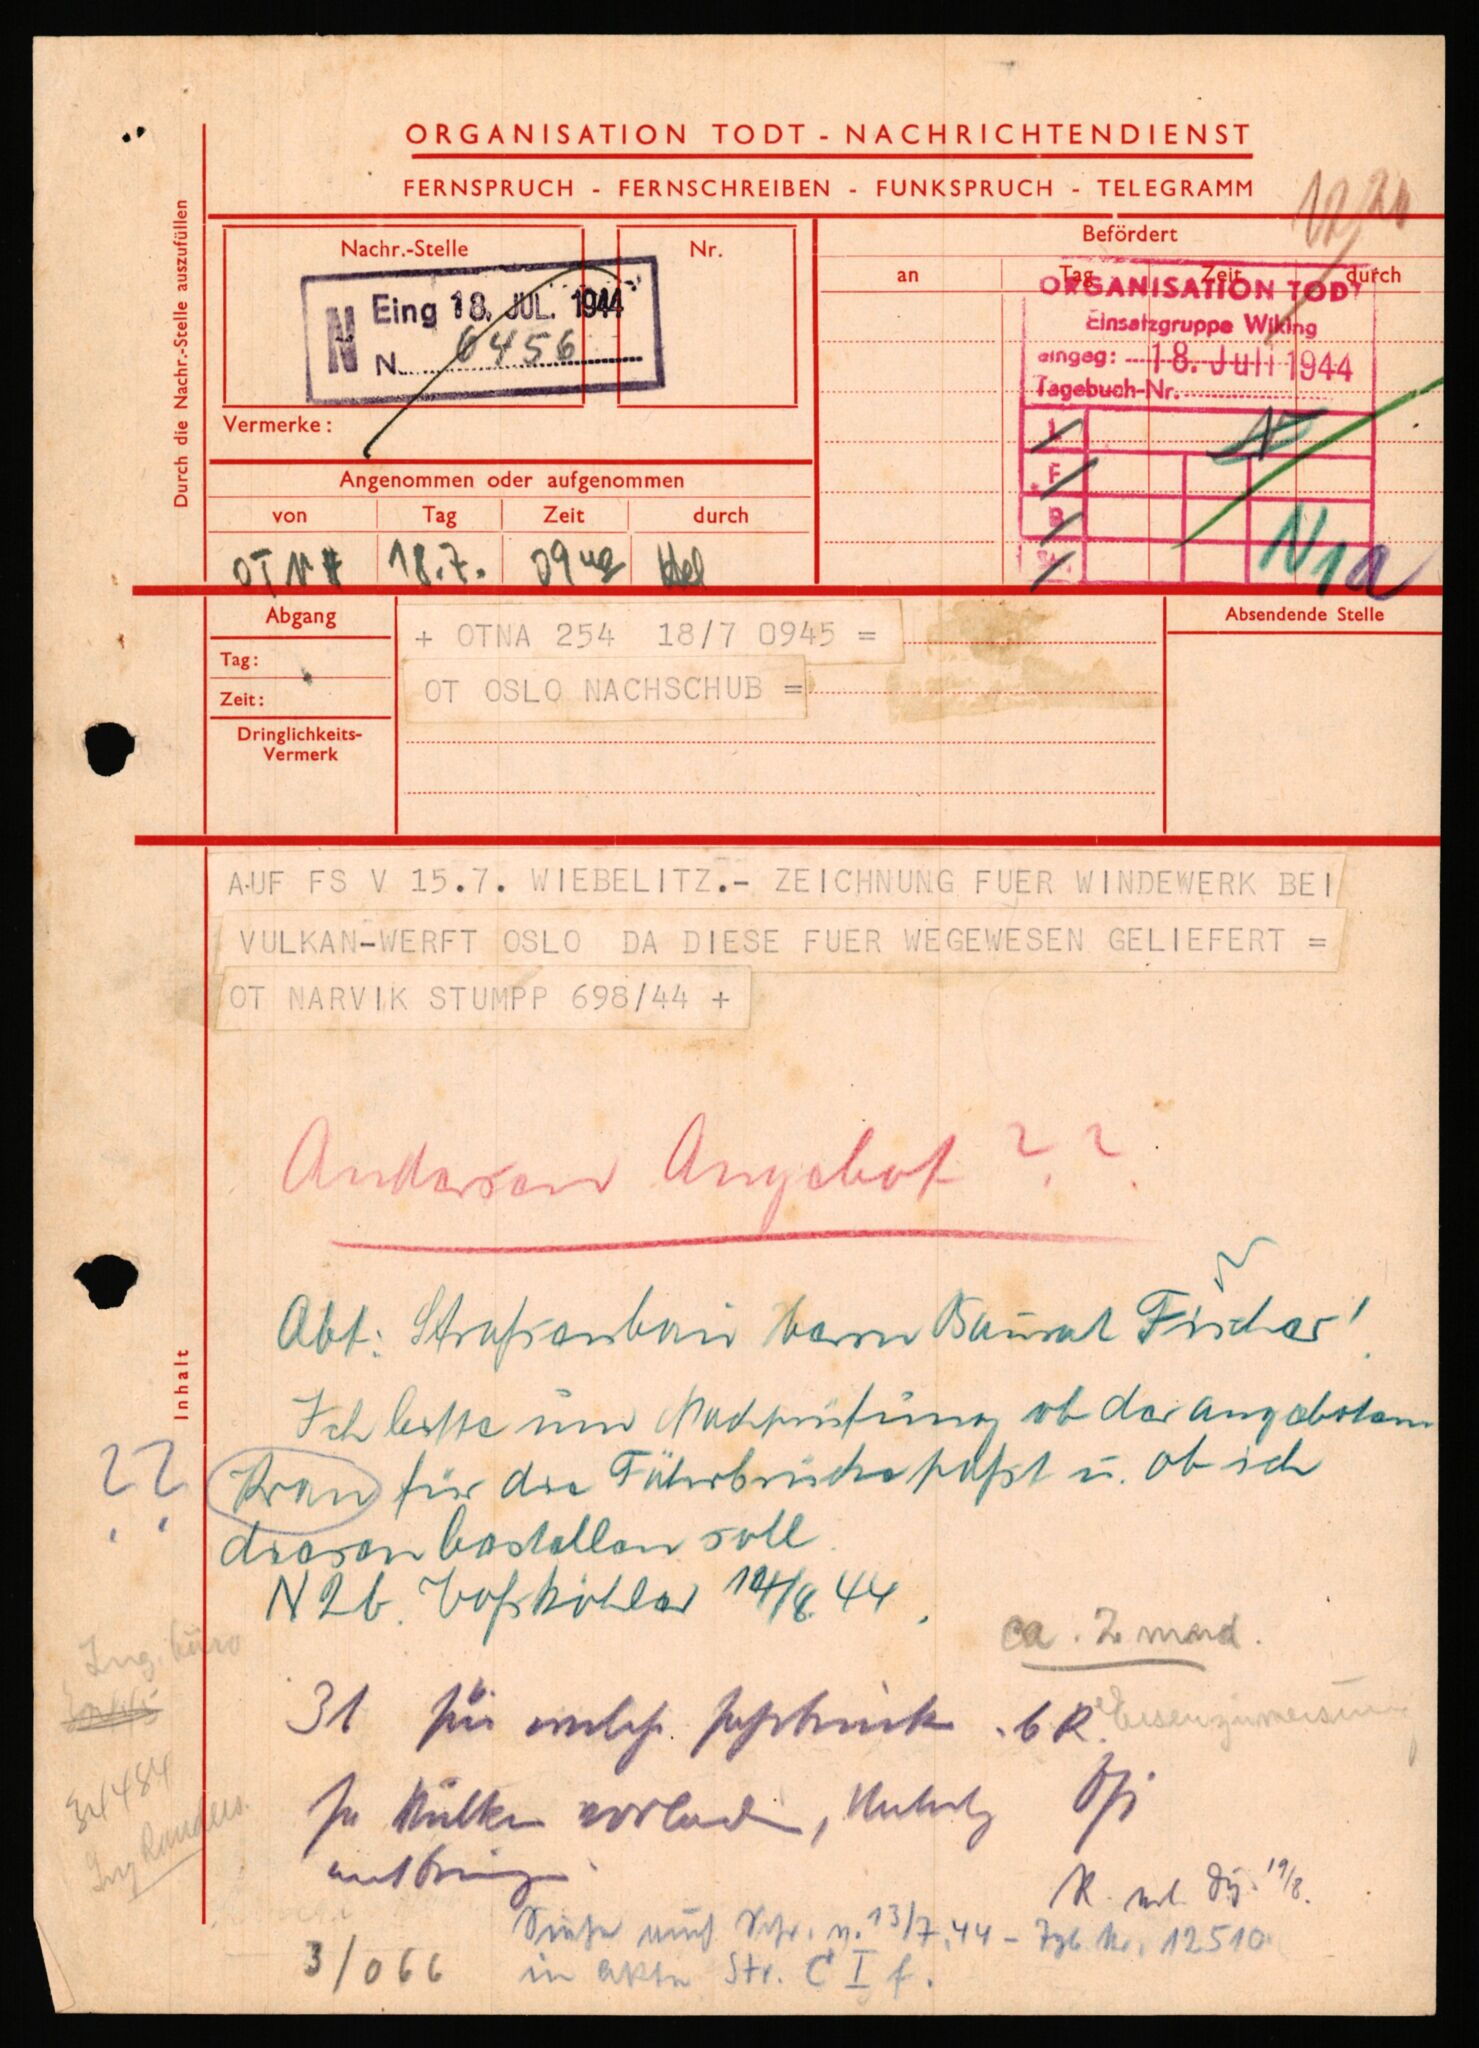 ORGANISATION TODT - NACHRICHTENDIENST
FERNSPRUCH - FERNSCHREIBEN - FUNKSPRUCH - TELEGRAMM
Durch die Nachr.-Stelle auszufüllen
Nachr.-Stelle
Nr.
N
Eing 18. JUL. 1944
N. 6456
Vermerke:
Angenommen oder aufgenommen
von Tag Zeit durch
18.7.
Befördert
an Tag Zeit durch
ORGANISATION TODT
Einsatzgruppe Wiking
eingeg: 18. Juli 1944
Tagebuch-Nr.
F
B
N1a
Abgang
Tag:
Zeit:
Dringlichkeits-
Vermerk
Absendende Stelle
+ OTNA 254 18/7 0945 =
OT OSLO NACHSCHUB =
AUF FS V 15.7. WIEBELITZ.- ZEICHNUNG FUER WINDEWERK BEI
VULKAN-WERFT OSLO DA DIESE FUER WEGEWESEN GELIEFERT =
OT NARVIK STUMPP 698/44 +
Inhalt
Andersen Angebot ? ?
Abt: Straßenbau Herrn Baurat Fischer!
Ich bitte um Nachprüfung ob der angebotene
? ? Kran für die Fährbrücke paßt u. ob ich
diesen bestellen soll.
N2b. Voßköhler 14/8.44.
Ing. büro
ca. 2 
31 für
Eisenzuweisung
34484
Ing Randers.
19/8.
Siehe auch Schr. v. 13/7.44 - Tgb. Nr. 12510
in akte Str. C I f.
3/066